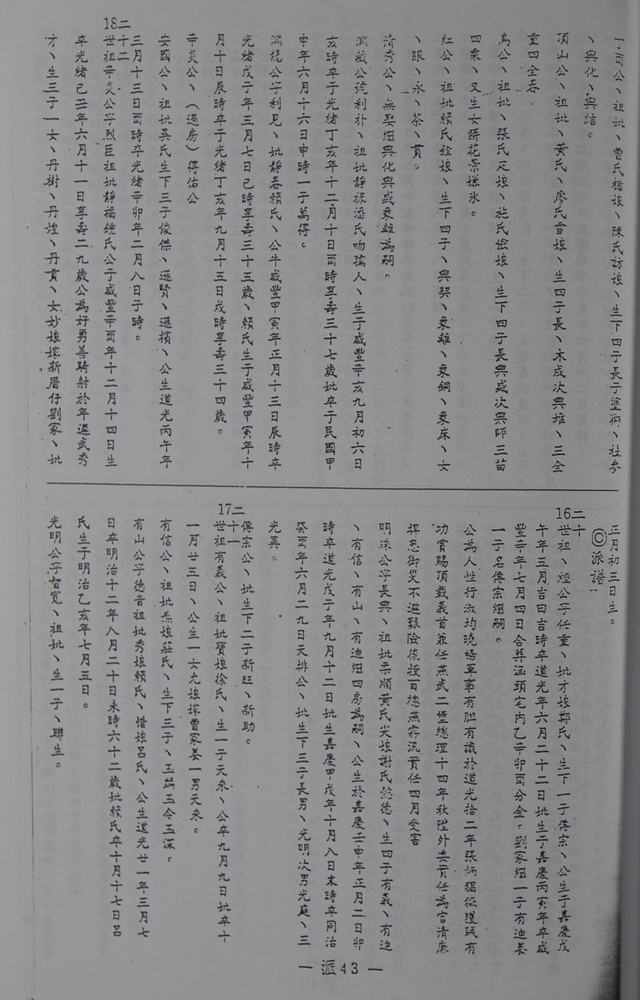 司公、祖妣、曹氏楷娘、陳氏訪娘、生四子長子塗獅、社參
、興化、興諧。
頂山公、祖妣、黃氏、廖氏言娘、生四子長、木成次興堆、三全
童四全吞。
烏公、祖妣、張氏疋娘、施氏儉娘、生下四子長興盛次興師三苗
四栗、又生女綉花景樣氷。
紅公、祖妣賴氏銓娘、生下四子、興契、東離、東銅、東床、女
、眼、永、茶、貫。
清秀公、無娶繼興化興盛東離為嗣。
淵嚴公號利朴、祖妣靜祿潘氏吻孺人、生于咸豐辛亥九月初六日
亥時卒于光緒丁亥年十二月十日酉時享壽三十七歲妣卒于民國甲
申年六月十六日申時一子萬得。
淵繞公字利見、妣靜春賴氏、公牛咸豐甲寅年正月十三日辰時卒
光緒戊子年三月七日己時享壽三十五歲、賴氏生于咸豐甲寅年十
月十日辰時卒于光緒丁亥年九月十五日戌時享壽三十四歲。
辛炎公、(過房)得佑公
安國公、祖妣吳氏生下三子俊傑、遜賢、遜檳、公生道光丙午年
三月十三日酉時卒光緒辛卯年二月八日子時。
18二十二世祖辛炎公字烈臣祖妣靜福鍾氏公于咸豐辛酉年十二月十四日生
卒光緒己丑年六月十一日享壽二九歲公為好勇善騎射於年遜武秀
才、生三子一女、丹樹、丹煌、丹貴、女妙娘嫁新厝仔劉家、妣
正月初三日生。
◎派譜:
16二十世祖、煙公字任重、妣才娘鄭氏、生下一子傳宗、公生于嘉慶戊
午年五月吉日吉時卒道光年六月二十二日妣生于嘉慶丙寅年卒咸
豐辛年七月四日合葬涵頭宅內乙辛卯酉分金。劉家繼一子有迪姜
一子名傳宗繼嗣。
公為人性行淑均曉悟軍事有胆有識於道光拾二年張炳猖徭獲賊有
功賞賜頂戴義首兼任燕武二堡總理十四年秋陞外委責任為官清廉
捍患御災不避艱險後授百總燕霧汛責任四月受害
明珠公字長興、祖妣柔順黃氏尖娘謝氏懿德、生四子有義、有迪
、有信、有山、有迪繼四房為嗣、公生於嘉慶壬申年正月二日卯
時卒道光戊子年九月十二日妣生嘉慶甲戌年十月八日末時卒同治
癸酉年六月二九日天排公、妣生下三子長男、光明次男光庭、三
光異。
傳宗公、妣生下二子新旺、新助。
17二十一世祖有義公、祖妣寶娘徐氏、生一子天來、公卒九月九日妣卒十
一月廿三日、公生一女九娘嫁曹家姜一男天來。
有信公、祖妣燕娘莊氏、生下三子、玉筠玉令玉深。
有山公字德音祖妣秀娘賴氏、惜娘呂氏、公生道光廿一年三月七
日卒明治十二年八月二十日末時六十二歲妣賴氏卒十月十七日呂
氏生于明治乙亥年七月五日。
光明公字智寬、祖妣、生一子、聯生。
— 派43 —